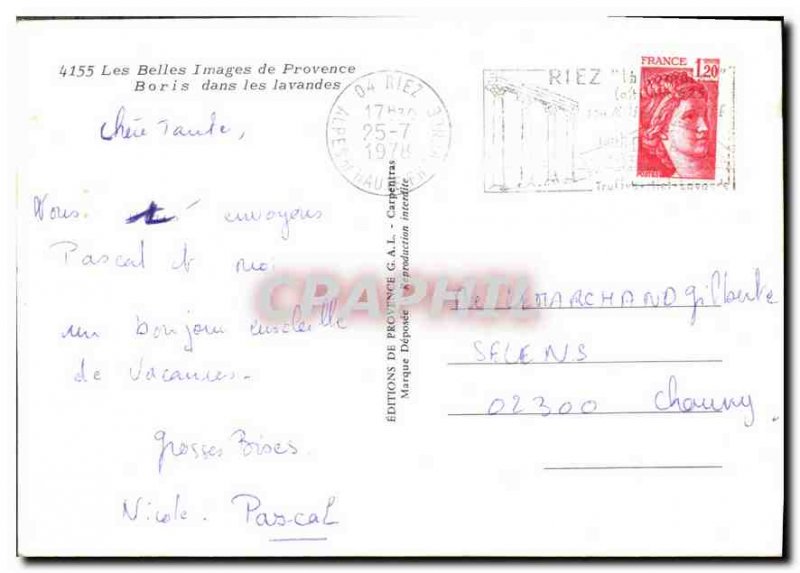 4155 Les Belles Images de Provence
Boris dans les lavandes
Chère Tante,
Nous envoyons
Pascal et moi
un bonjour ensoleillé
de vacances.
Grosses Bises.
Nicole. Pascal
ÉDITIONS DE PROVENCE G.A.L. - Carpentras
Marque Déposée - Reproduction interdite
04 RIEZ
17H
25-7
1978
RIEZ
FRANCE 1,20
CPAPHIL
LEMARCHAND Gilberte
SELENS
02300 Chauny.